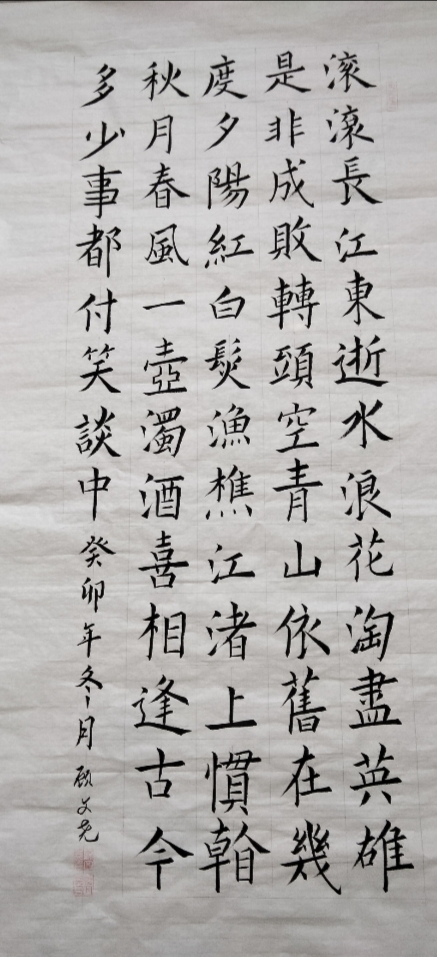 滚滚長江東逝水浪花淘盡英雄
是非成敗轉頭空青山依舊在幾
度夕陽紅白髮漁樵江渚上慣看
秋月春風一壺濁酒喜相逢古今
多少事都付笑談中癸卯年冬月顾文